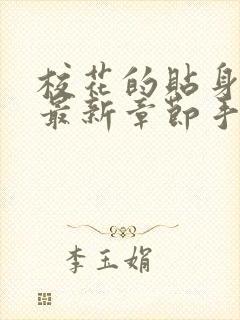 校花的贴身
最新章节手
李玉娟